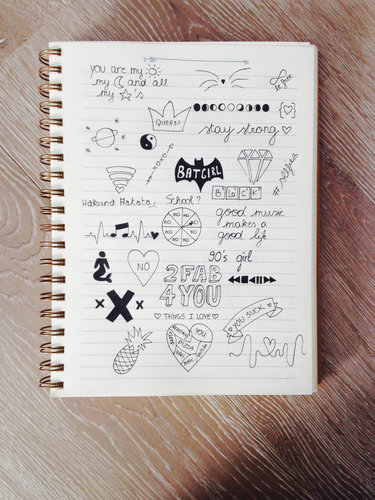 you are my
my and all
my 's
be free
QUEEN
stay strong
BATGIRL
# selfies
BLACK
Hakuna Matata
School?
NO NO NO NO NO NO NO NO
good music
makes a
good life
NO
90's girl
2 FAB
4 YOU
THINGS I LOVE
YOU SUCK
YOU
PIZZA